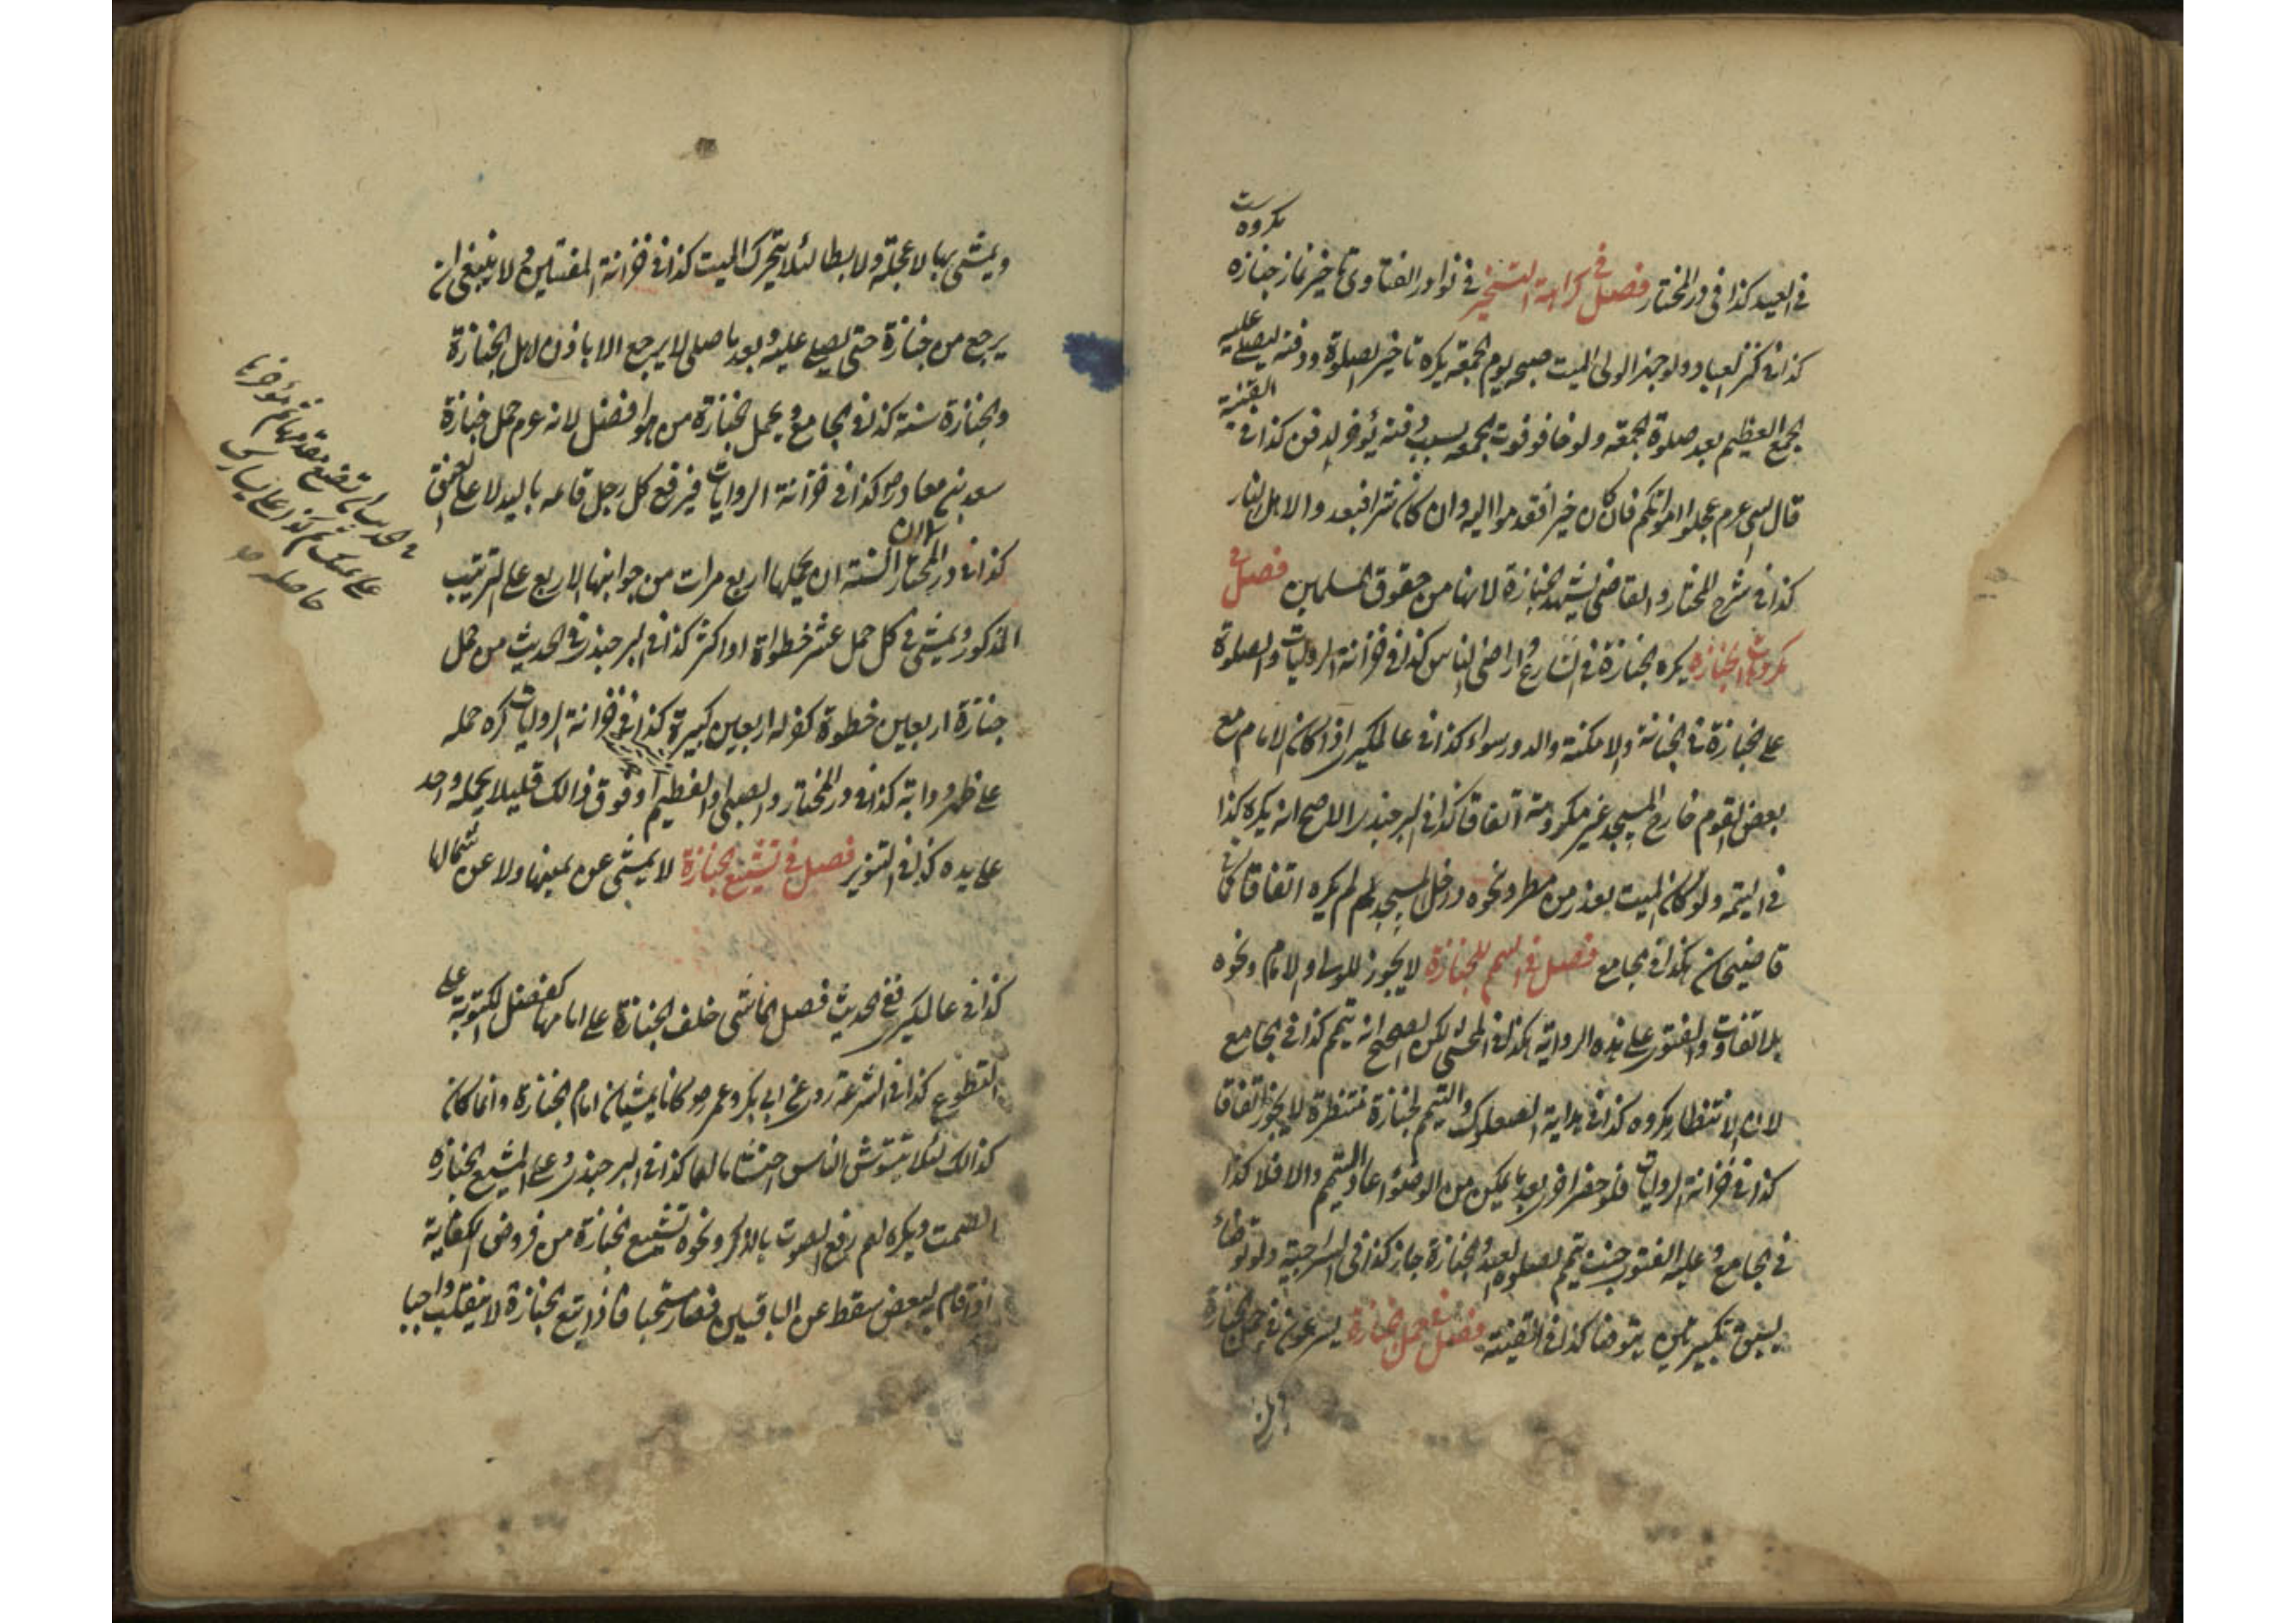 مكروه ست
في العيد كذا في در المختار فصل في كراهة التأخير في نوادر الفتاوى تاخير نماز جنازه
كذا في كنز العباد ولو جهز الولي الميت صبح يوم الجمعة يكره تاخير الصلوة ودفنه ليصلي عليه
الجمع العظيم بعد صلوة الجمعة ولو خافوا فوت الجمعة بسبب دفنه يؤخر الدفن كذا في القنية
قال النبي عم عجلوا امواتكم فان كان خيرا فقدموا اليه وان كان شرا فبعدوا لاهل النار
كذا في شرح المختار والقاضي يشهد الجنازة لانها من حقوق المسلمين فصل في
مكروهات الجنازه يكره الجنازة في الشارع واراضي الناس كذا في خزانة الروايات والصلوة
على الجنازة في الجبانة والامكنة والدور سواء كذا في عالمكيري اذا كان الامام مع
بعض القوم خارج المسجد غير مكروهة اتفاقا كذا في البرجندي الاصح انه يكره كذا
في اليتيمة ولو كان الميت بعذر من مطر ونحوه داخل المسجد لم يكره اتفاقا كما في
قاضيخان هكذا في الجامع فصل في التيمم للجنازة لا يجوز للولي والامام ونحوه
بلا تفاوت والفتوى على هذه الرواية هكذا في لكن الصحيح انه يتيمم كذا في الجامع
لان الانتظار مكروه كذا في هداية الصعلوك والتيمم لجنازة منتظرة لا يجوز اتفاقا
كذا في خزانة الروايات فلو حضر اخرى بعد ما يمكن من الوضوء اعاد التيمم والا فلا كذا
في الجامع وعليه الفتوى جنب تيمم لصلوة العيد والجنازة جاز كذا في السراجية ولو توضأ
يسبق بتكبيرتين يتوضا كذا في القنية فصل في حمل جنازة يسرعون في حمل الجنازة
ويمشي بها بلا عجلة ولا بطا لئلا يتحرك الميت كذا في خزانة المفتيين ولا ينبغي ان
يرجع من جنازة حتى يصلي عليه وبعد ما صلى لا يرجع الا باذن لاهل الجنازة
والجنازة سنة كذا في الجامع ويحمل الجنازة من هو افضل لانه عم حمل جنازة
سعد بن معاذ رض كذا في خزانة الروايات فيرفع كل رجل قائمه باليد لا على العنق
كذا في در المختار السنة ان يحملها اربع مرات من جوانبها الاربع على الترتيب
المذكور ويمشي في كل حمل عشر خطوات او اكثر كذا في البرجندي في الحديث من حمل
جنازة اربعين خطوة كفر له اربعين كبيرة كذا في خزانة الروايات كره حمله
على ظهر ودابة كذا في در المختار والصبي والفطيم او فوق ذالك قليلا يحمله واحد
على يده كذا في التنوير فصل في تشييع جنازة لا يمشي عن يمينها ولا عن شمالها
كذا في عالمكيري ففي الحديث فضل الماشي خلف الجنازة على امامها كفضل المكتوبة على
التطوع كذا في الشرعة روي عن ابي بكر وعمر رض كانا يمشيان امام الجنازة وانما كان
كذالك لئلا يتشوش الناس احتشاما لهما كذا في البرجندي وعلى المشيع الجنازة
الصمت ويكره لهم رفع الصوت بالذكر ونحوه تشييع الجنازة من فروض الكفاية
اذا قام البعض سقط عن الباقين فصار مستحبا فاذا تبع الجنازة لا ينقلب واجبا
ثم مؤخرها
تضع مقدمها
على يمينك ثم كذا على يسارك